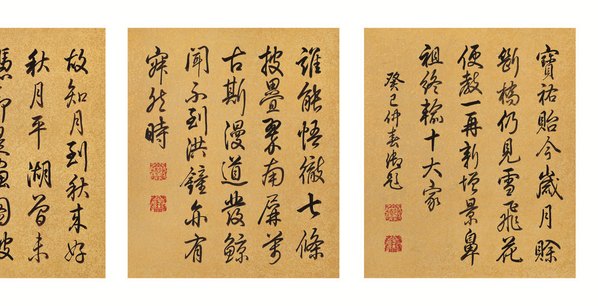 寶祐貽今歲月賒
斷橋仍見雪飛花
便教一再新增景鼻
祖終輸十大家
癸巳仲春御題
誰能悟徹七條
披疊翠南屏萬
古斯漫道發鯨
聞不到洪鐘亦有
寂然時
故知月到秋來好
秋月平湖曾未